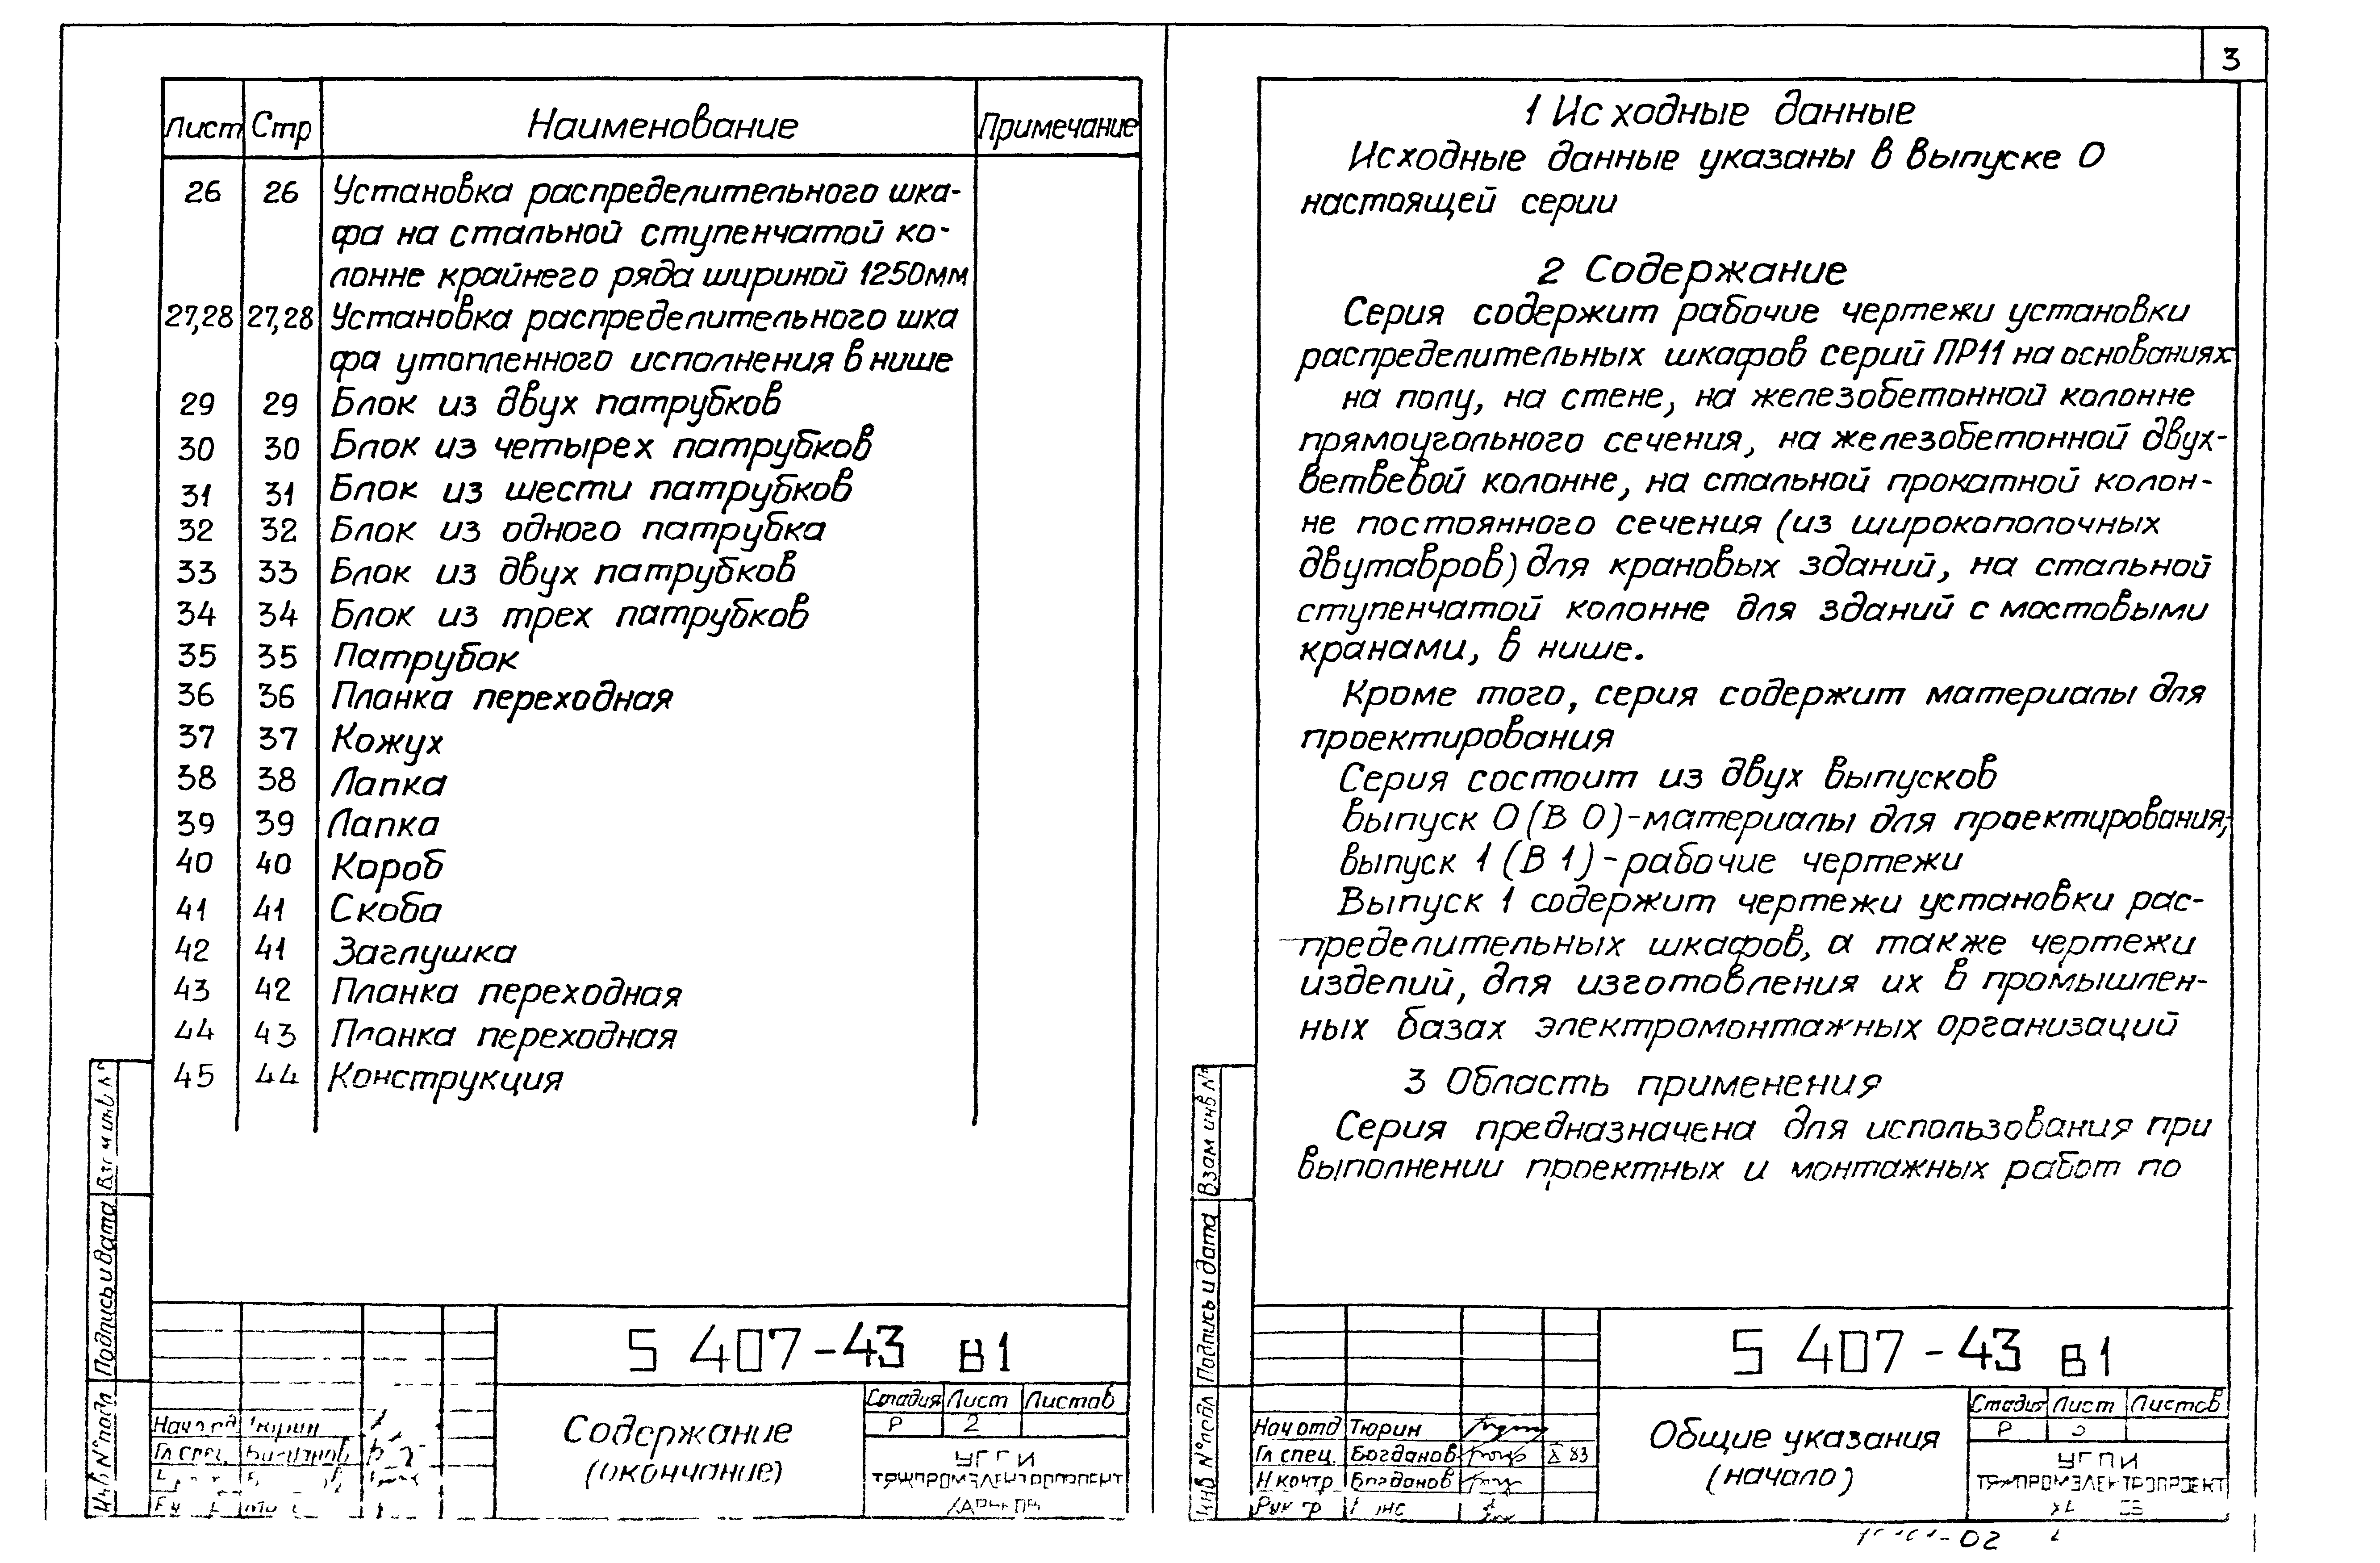 Лист Стр Наименование Примечание
26 26 Установка распределительного шка-
фа на стальной ступенчатой ко-
лонне крайнего ряда шириной 1250мм
27,28 27,28 Установка распределительного шка
фа утопленного исполнения в нише
29 29 Блок из двух патрубков
30 30 Блок из четырех патрубков
31 31 Блок из шести патрубков
32 32 Блок из одного патрубка
33 33 Блок из двух патрубков
34 34 Блок из трех патрубков
35 35 Патрубок
36 36 Планка переходная
37 37 Кожух
38 38 Лапка
39 39 Лапка
40 40 Короб
41 41 Скоба
42 41 Заглушка
43 42 Планка переходная
44 43 Планка переходная
45 44 Конструкция
Подпись и дата
5 407-43 В1
Содержание
(окончание)
Стадия Лист Листов
Р 2
Нач отд Тюрин
Гл спец. Богданов
УГПИ
3
1 Исходные данные
Исходные данные указаны в выпуске 0
настоящей серии
2 Содержание
Серия содержит рабочие чертежи установки
распределительных шкафов серий ПР11 на основаниях
на полу, на стене, на железобетонной колонне
прямоугольного сечения, на железобетонной двух-
ветвевой колонне, на стальной прокатной колон-
не постоянного сечения (из широкополочных
двутавров) для крановых зданий, на стальной
ступенчатой колонне для зданий с мостовыми
кранами, в нише.
Кроме того, серия содержит материалы для
проектирования
Серия состоит из двух выпусков
выпуск 0 (В 0)-материалы для проектирования;
выпуск 1 (В 1)-рабочие чертежи
Выпуск 1 содержит чертежи установки рас-
пределительных шкафов, а также чертежи
изделий, для изготовления их в промышлен-
ных базах электромонтажных организаций
3 Область применения
Серия предназначена для использования при
выполнении проектных и монтажных работ по
Взам инв №
Подпись и дата
Инв № подл
5 407-43 В1
Общие указания
(начало)
Стадия Лист Листов
Р 3
Нач отд Тюрин
Гл спец. Богданов X 83
Н контр Богданов
Рук гр
УГПИ
ТЯЖПРОМЭЛЕКТРОПРОЕКТ